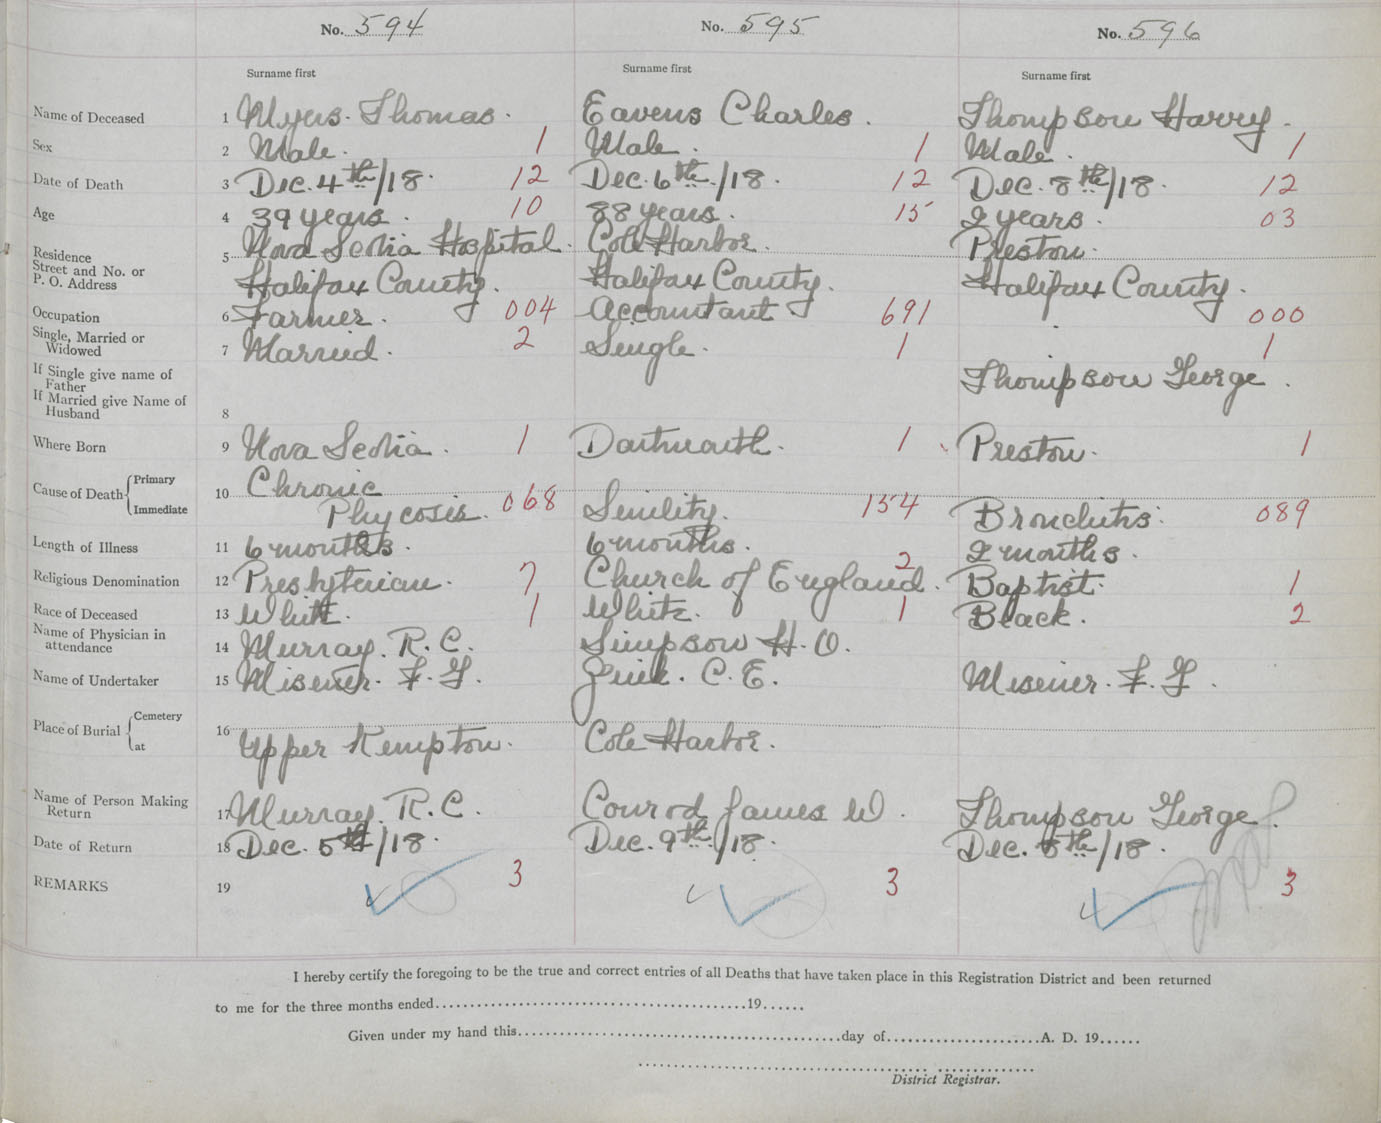 No. 594 No. 595 No. 596
Surname first Surname first Surname first
Name of Deceased 1 Myers. Thomas. Eavens Charles. Thompson Harry.
Sex 2 Male. 1 Male. 1 Male. 1
Date of Death 3 Dec. 4th/18. 12 Dec. 6th/18. 12 Dec. 8th/18. 12
Age 4 39 years. 10 88 years. 15 2 years. 03
Residence 5 Nova Scotia Hospital. Cole Harbor. Preston.
Street and No. or
P. O. Address Halifax County. Halifax County. Halifax County.
Occupation 6 Farmer. 004 Accountant 691 000
Single, Married or
Widowed 7 Married. 2 Single. 1 1
If Single give name of
Father Thompson George.
If Married give Name of
Husband 8
Where Born 9 Nova Scotia. 1 Dartmouth. 1 Preston. 1
Cause of Death Primary 10 Chronic
Immediate Phycosis. 068 Senility. 154 Bronchitis. 089
Length of Illness 11 6 months. 6 months. 2 months.
Religious Denomination 12 Presbyterian. 7 Church of England. 2 Baptist. 1
Race of Deceased 13 White. 1 White. 1 Black. 2
Name of Physician in
attendance 14 Murray. R. C. Simpson H. O.
Name of Undertaker 15 Misener. F. G. C. E. Misener. F. G.
Place of Burial Cemetery 16
at Upper Kempton. Cole Harbor.
Name of Person Making
Return 17 Murray. R. C. Conrod James W. Thompson George.
Date of Return 18 Dec. 5th/18. Dec. 9th/18. Dec. 8th/18.
REMARKS 19 3 3 3
I hereby certify the foregoing to be the true and correct entries of all Deaths that have taken place in this Registration District and been returned
to me for the three months ended 19
Given under my hand this day of A. D. 19
District Registrar.